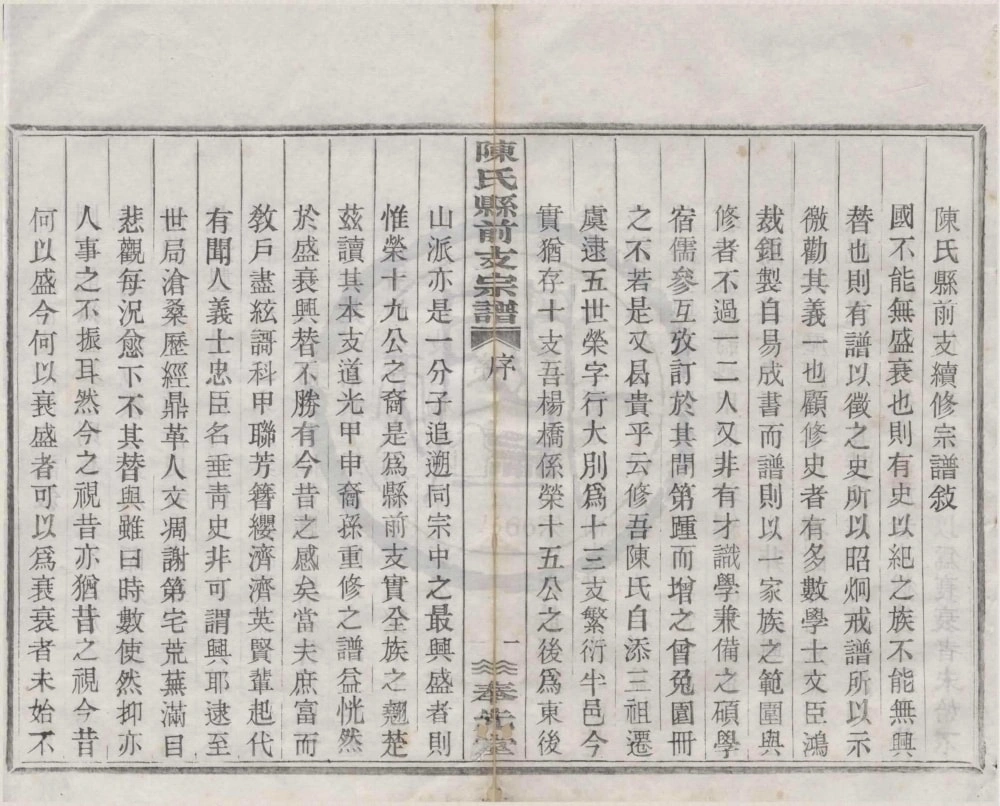 陳氏縣前支續修宗譜敘
國不能無盛衰也則有史以紀之族不能無興
替也則有譜以徵之史所以昭烱戒譜所以示
微勸其義一也顧修史者有多數學士文臣鴻
裁鉅製自易成書而譜則以一家族之範圍與
修者不過一二人又非有才識學兼備之碩學
宿儒參互攷訂於其間第踵而增之曾兔園冊
之不若是又曷貴乎云修吾陳氏自添三祖遷
虞逮五世榮字行大別爲十三支繁衍半邑今
實猶存十支吾楊橋係榮十五公之後爲東後
陳氏縣前支宗譜
序
一
奉先堂
山派亦是一分子追遡同宗中之最興盛者則
惟榮十九公之裔是爲縣前支實全族之翹楚
茲讀其本支道光甲申裔孫重修之譜益恍然
於盛衰興替不勝有今昔之感矣當夫庶富而
敎戶盡絃謌科甲聯芳簪纓濟濟英賢輩起代
有聞人義士忠臣名垂靑史非可謂興耶逮至
世局滄桑歷經鼎革人文凋謝第宅荒蕪滿目
悲觀每況愈下不其替與雖曰時數使然抑亦
人事之不振耳然今之視昔亦猶昔之視今昔
何以盛今何以衰盛者可以爲衰衰者未始不